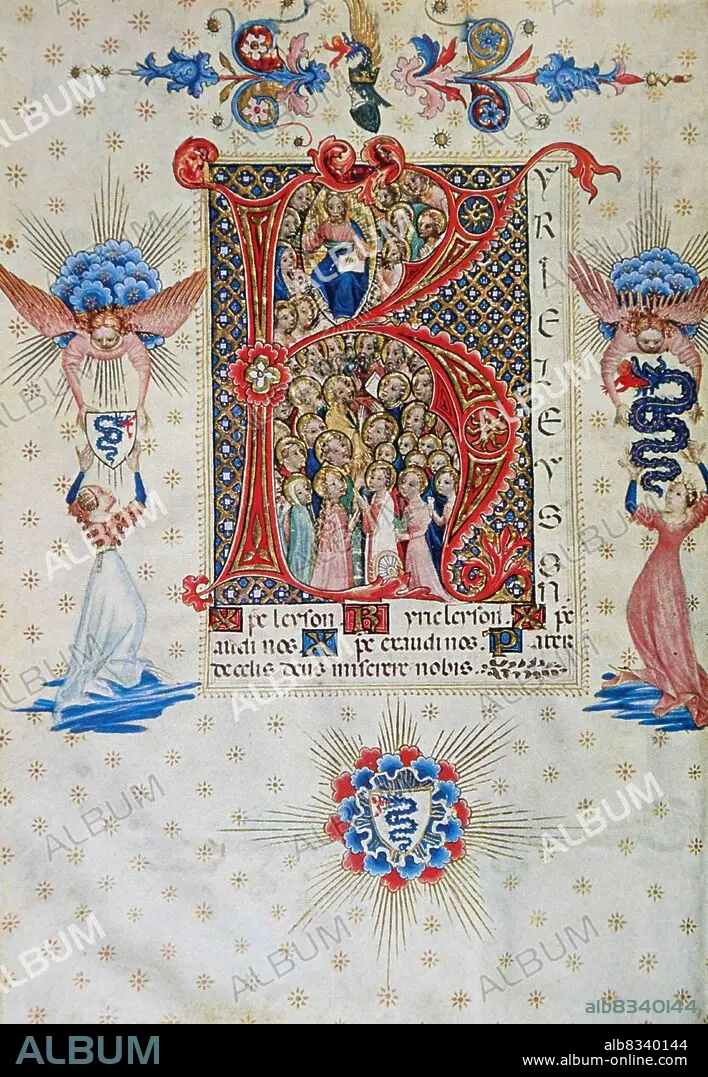 KYRIELEYSON
Xpe leyson Kyrieleyson. Xpe
audi nos. Xpe exaudi nos. Pater
de celis deus miserere nobis.
alb8340144
ALBUM
alb8340144
www.album-online.com